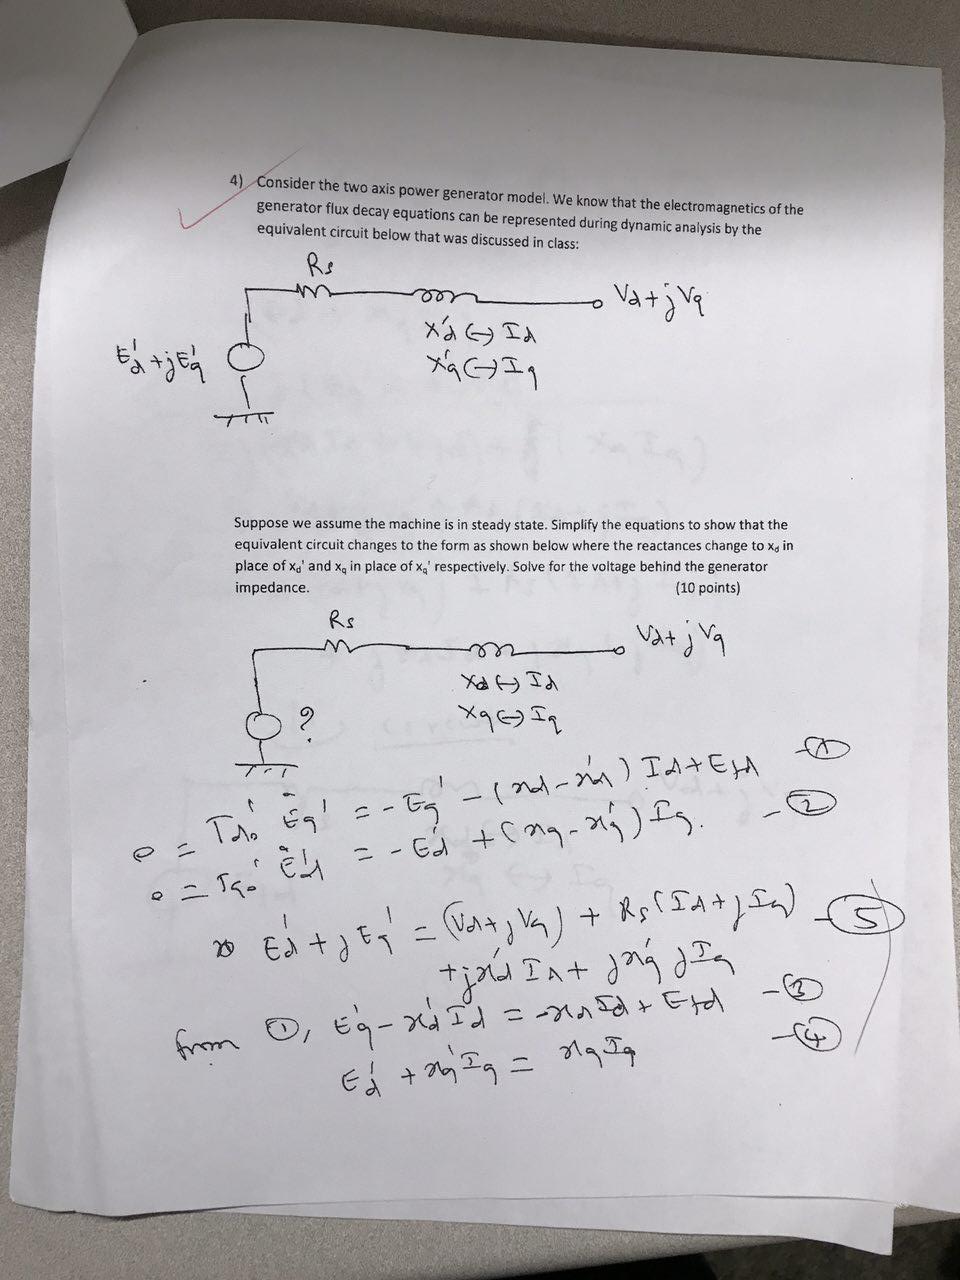 4) Consider the two axis power generator model. We know that the electromagnetics of the
generator flux decay equations can be represented during dynamic analysis by the
equivalent circuit below that was discussed in class:
Rs
Vd+jVq
Ed'+jEq'
xd' ↔ Id
xq' ↔ Iq
Suppose we assume the machine is in steady state. Simplify the equations to show that the
equivalent circuit changes to the form as shown below where the reactances change to xd in
place of xd' and xq in place of xq' respectively. Solve for the voltage behind the generator
impedance. (10 points)
Rs
Vd+jVq
xd ↔ Id
xq ↔ Iq
?
0 = Tdo' Ėq' = -Eq' - (xd-xd') Id + Efd -①
0 = Tqo' Ėd' = -Ed' + (xq-xq') Iq. -②
Ed' + jEq' = (Vd+jVq) + Rs(Id+jIq) -⑤
+jxd' Id + jxq' jIq
from ①, Eq' - xd'Id = -xdId + Efd -③
Ed' + xq'Iq = xqIq -④